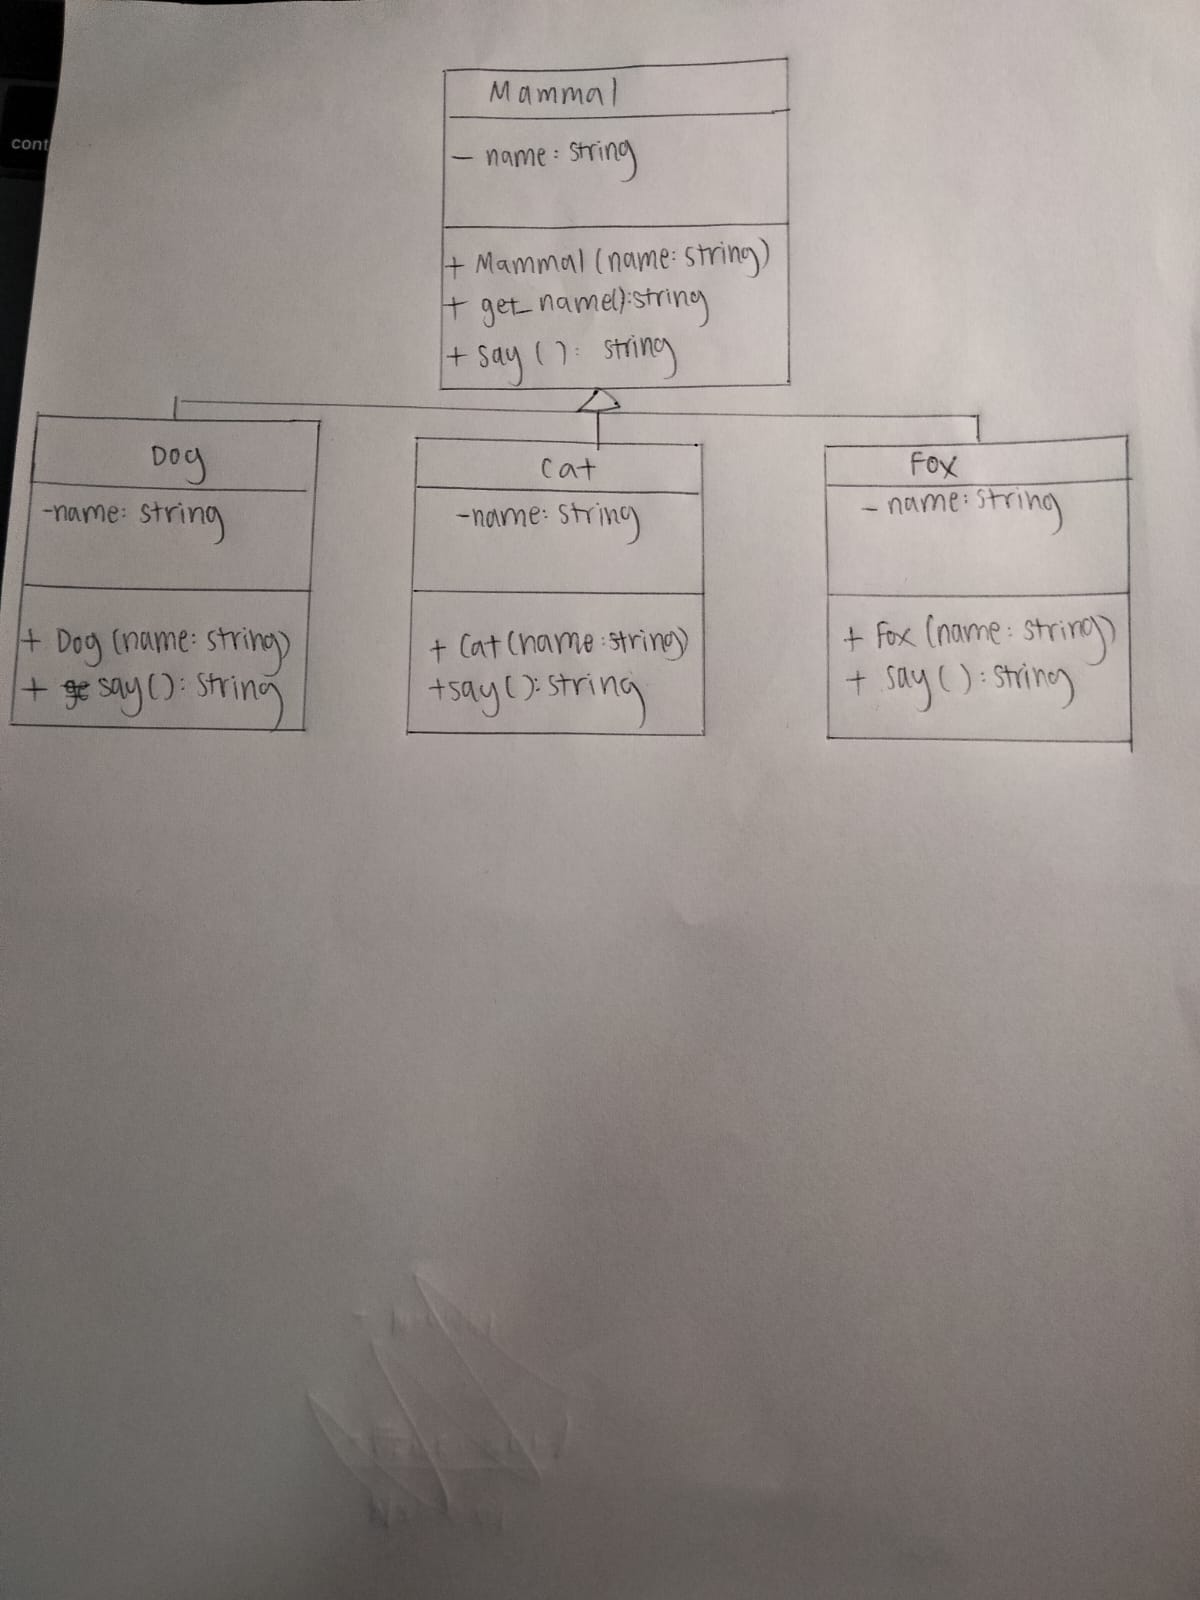 cont
Mammal
- name: string
+ Mammal (name: string)
+ get_name():string
+ say ( ): string
Dog
-name: string
+ Dog (name: string)
+ say(): string
Cat
-name: string
+ Cat (name:string)
+say ( ): string
Fox
- name: string
+ Fox (name: string)
+ say ( ): string